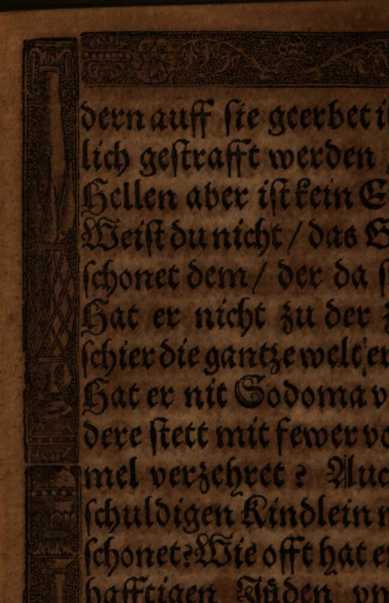 dern auff sie geerbet
lich gestrafft werden
Hellen aber ist kein
Weist du nicht / das
schonet dem / der da
Hat er nicht zu der
schier die gantze welt
Hat er nit Sodoma
dere stett mit fewer
mel verzehret ? Auc
schuldigen Kindlein
schonet? Wie offt hat
hafftigen Jüden